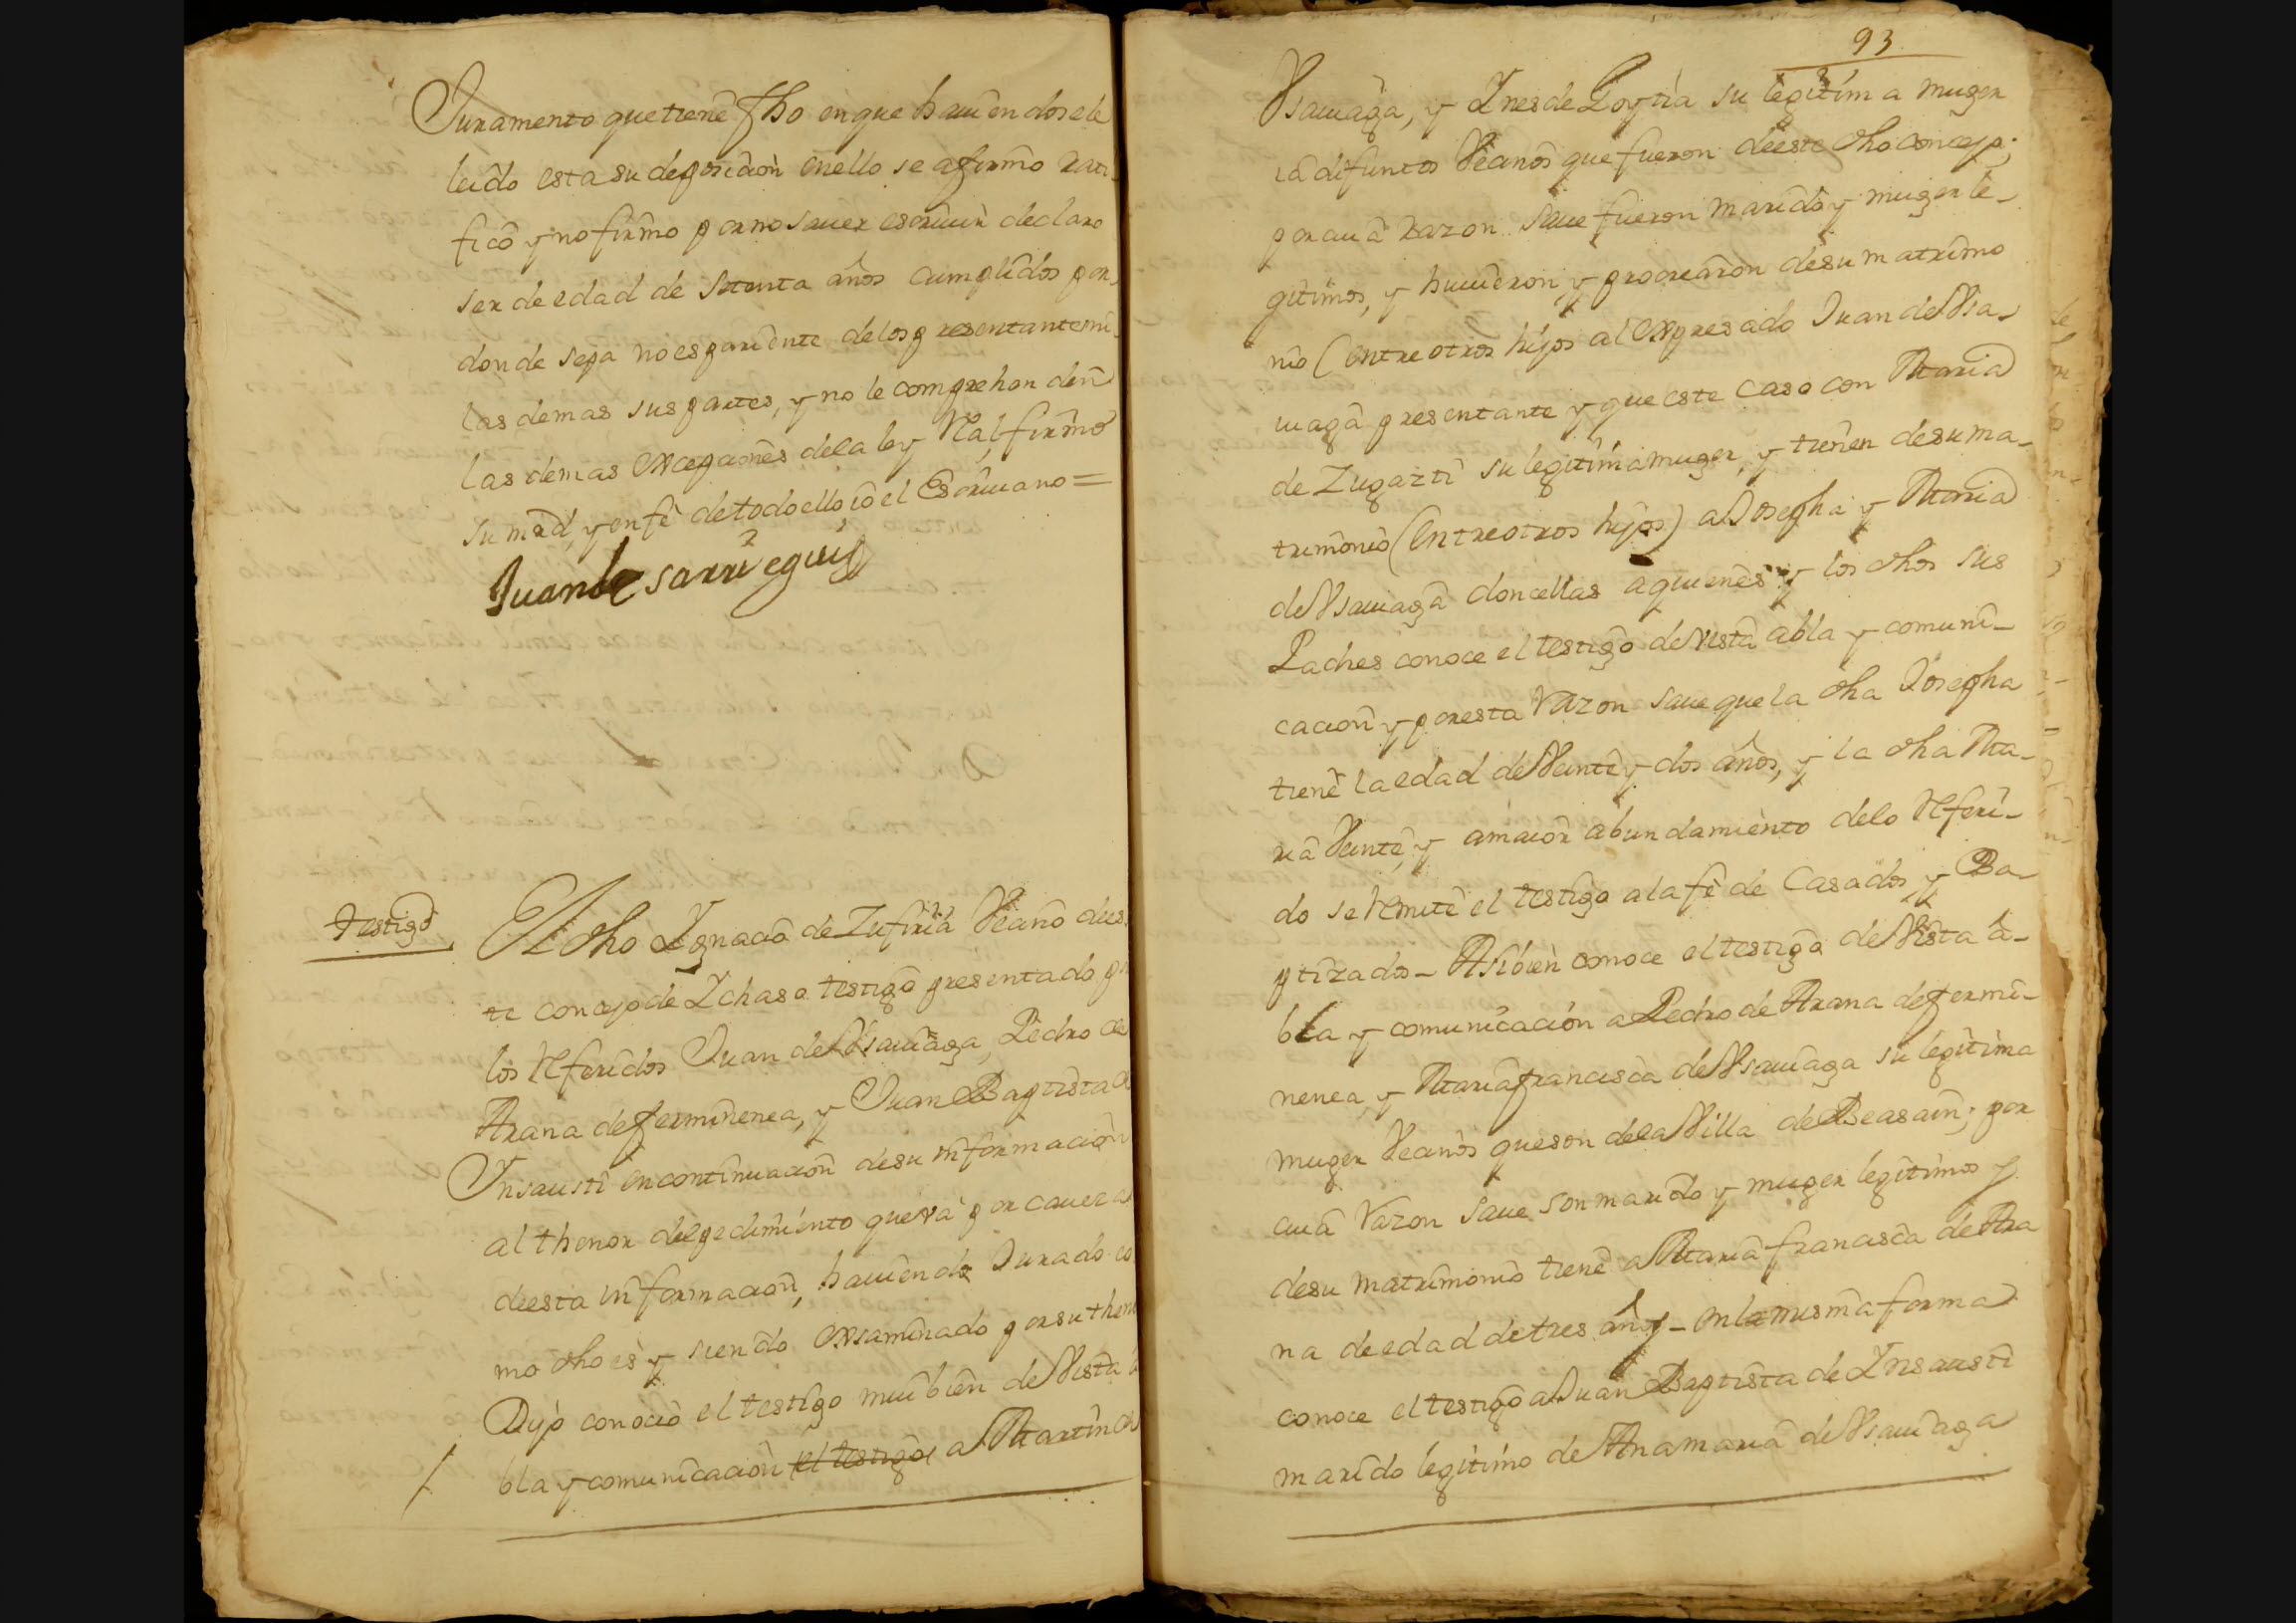 Juramento que tiene fho en que hauiendosele
leido esta su deposicion en ello se afirmo rati-
ficô y no firmo por no sauer escriuir declaro
ser de edad de setenta años cumplidos por
donde sepa no es pariente de los presentantes ni
las demas sus partes, y no le comprehenden
las demas excepciones de la ley Rl, firmo
su mrd, y en fê de todo ello io el Escriuano =
Juan de Sarriegui
testigo
El dho Ygnacio de Zufiria Veçino de es-
te concejo de Ychaso testigo presentado por
los referidos Juan de Vsauiaga, Pedro de
Arana de ferminenea, y Juan Baptista de
Insausti en continuacion de su informacion
al thenor del pedimiento que và por caueza
de esta informacion, hauiendo Jurado co-
mo dho es y siendo exsaminado por su thenor
Dijo conociò el testigo mui bien de Vista â
bla y comunicacion el testigo a Martin de
93
Vsauiaga, y Ynes de Goytia su legitima muger
ia difuntos Veçinos que fueron de este dho concejo;
por cuia razon saue fueron marido y muger le-
gitimos, y huuieron, y procrearon de su matrimo
nio (entre otros hijos al expresado Juan de Vsa-
uiaga presentante y que este caso con Maria
de Zugazti su legitima muger, y tienen de su ma-
trimonio (entre otros hijos) a Josepha y Maria
de Vsauiaga doncellas a quienes y los dhos sus
Padres conoce el testigo de vista abla y comuni-
cacion y por esta razon saue que la dha Josepha
tiene la edad de Veinte y dos años, y la dha Ma-
ria Veinte, y amaior abundamiento de lo referi-
do se remite el testigo a la fê de Casados y Ba-
ptizados - Asibien conoce el testigo de Vista â-
bla y comunicacion a Pedro de Arana de fermi-
nenea, y Maria francisca de Vsauiaga su legitima
muger Veçinos que son de la Villa de Beasain; por
cuia razon saue son marido y muger legitimos y
de su matrimonio tiene a Maria francisca de Ara
na de edad de tres años - en la misma forma
conoce el testigo a Juan Baptista de Insausti
marido legitimo de Ana maria de Vsauiaga